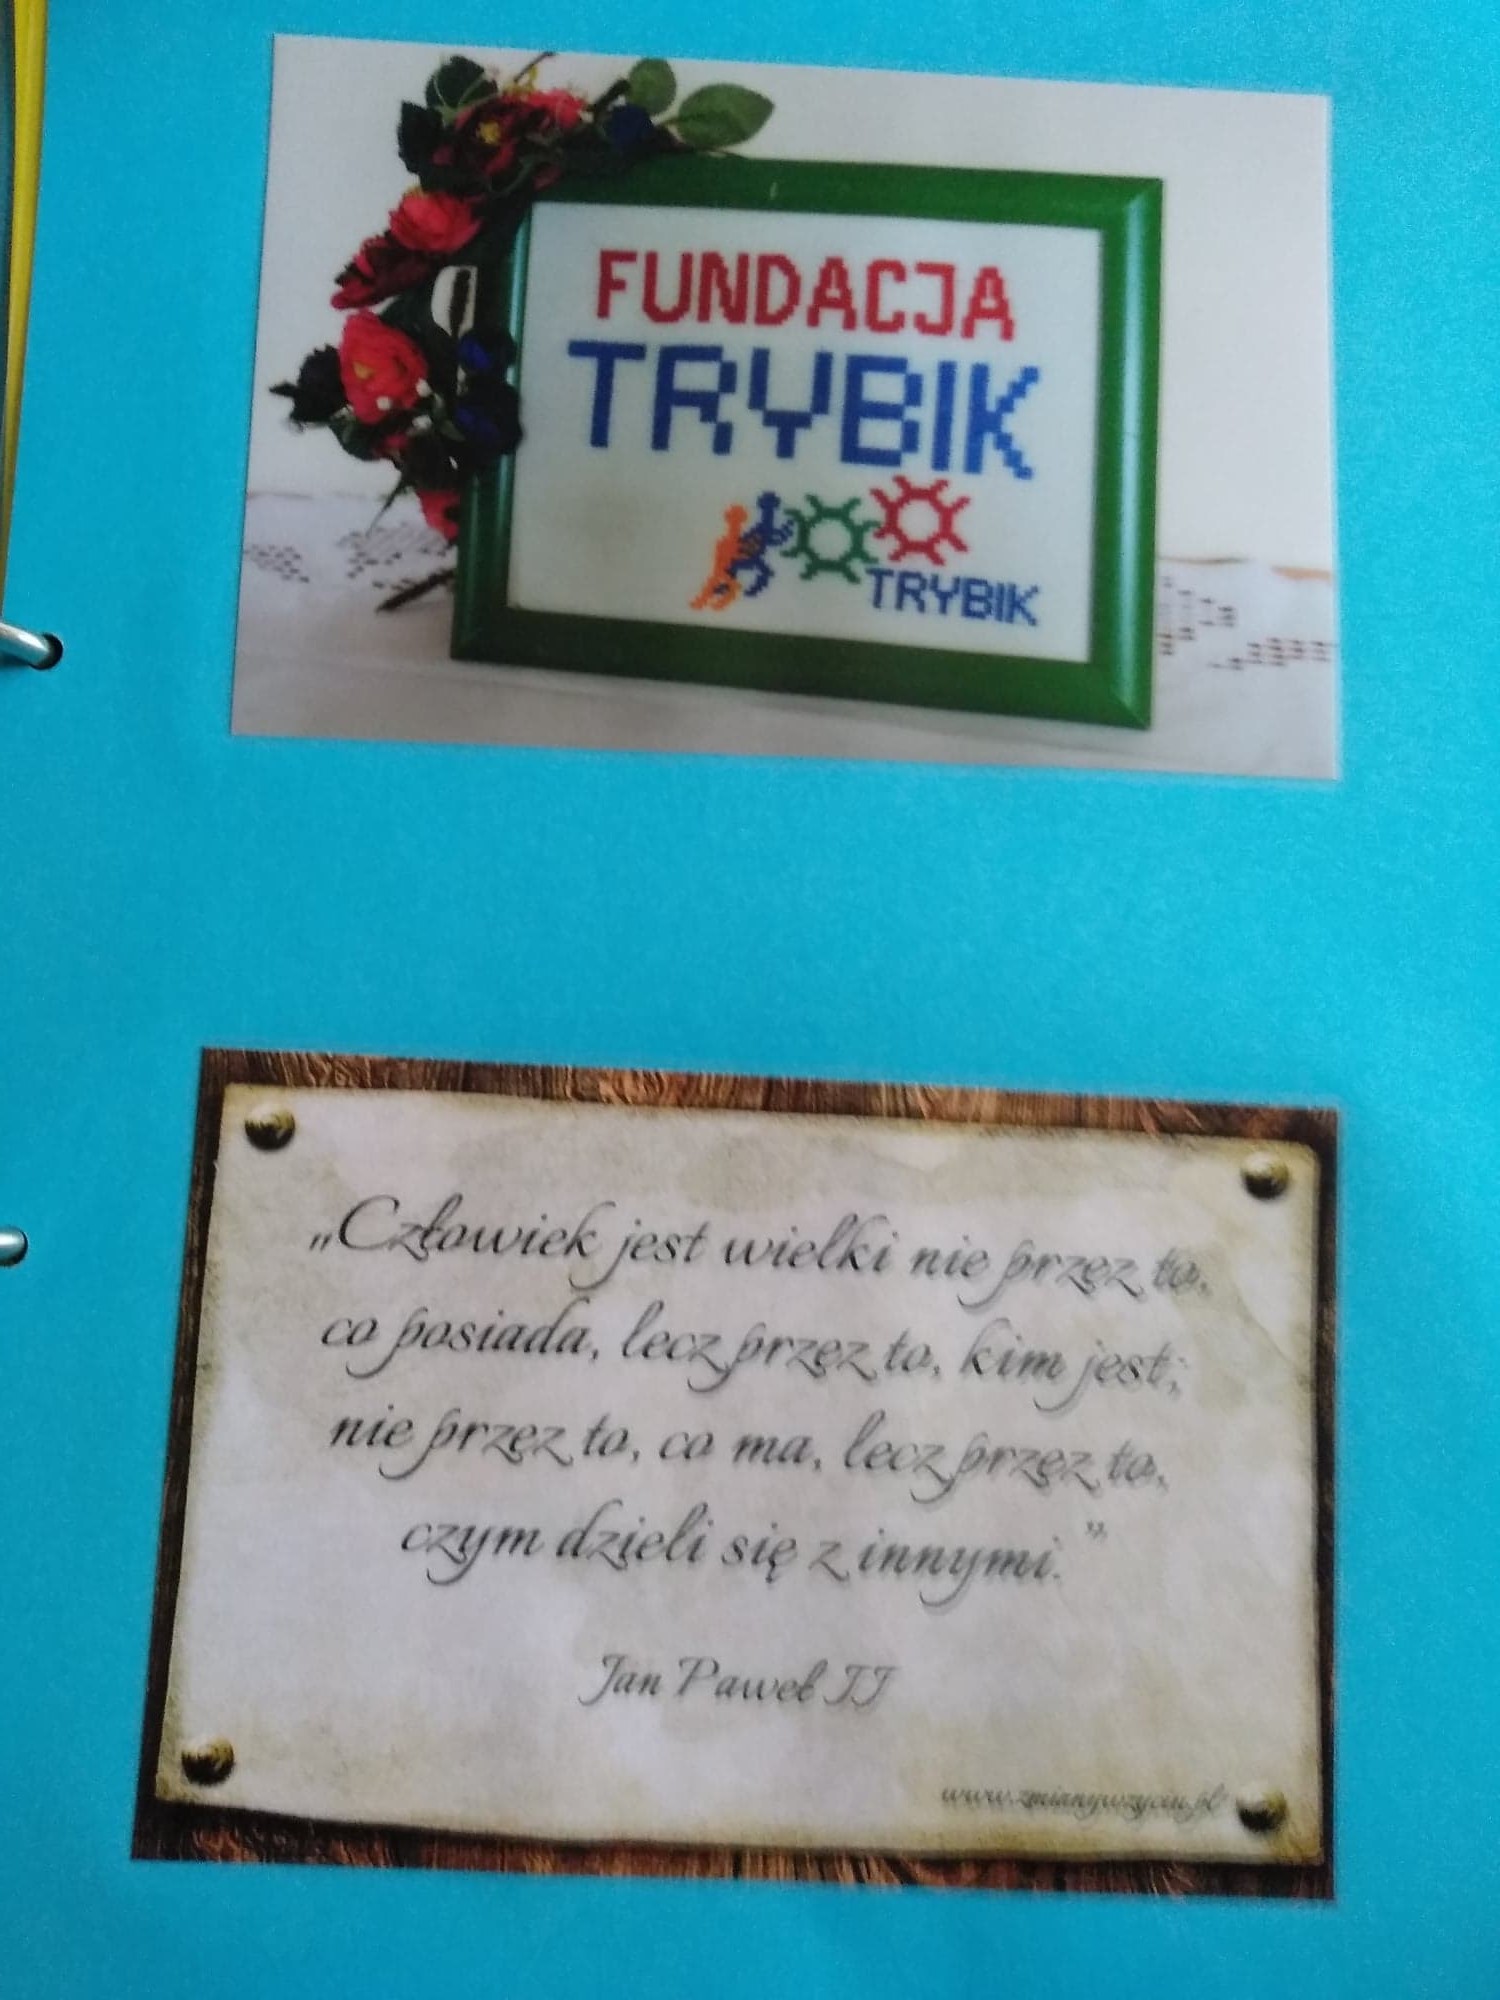 FUNDACJA
TRYBIK
TRYBIK
„Człowiek jest wielki nie przez to,
co posiada, lecz przez to, kim jest;
nie przez to, co ma, lecz przez to,
czym dzieli się z innymi."
Jan Paweł II
www.zmianywzyciu.pl